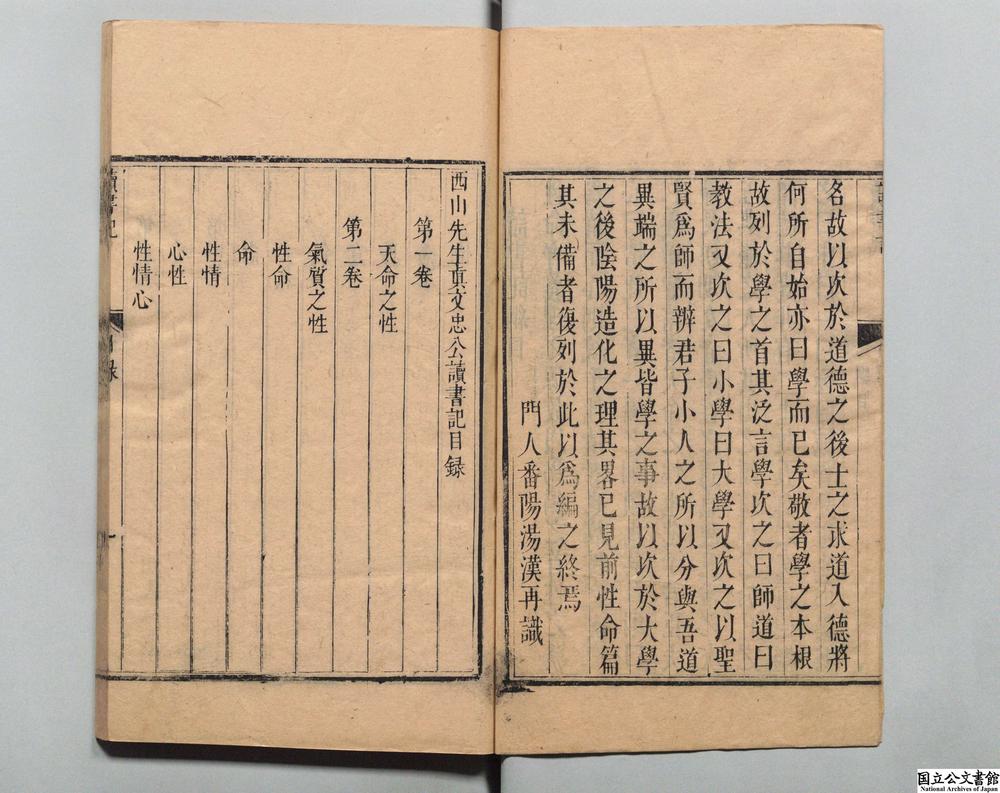 名故以次於道德之後士之求道入德將
何所自始亦曰學而已矣敬者學之本根
故列於學之首其泛言學次之曰師道曰
教法又次之曰小學曰大學又次之以聖
賢爲師而辨君子小人之所以分與吾道
異端之所以異皆學之事故以次於大學
之後陰陽造化之理其畧已見前性命篇
其未備者復列於此以爲編之終焉
門人番陽湯漢再識
西山先生眞文忠公讀書記目録
第一卷
天命之性
第二卷
氣質之性
性命
命
性情
心性
性情心
讀書記
目録
一
国立公文書館
National Archives of Japan